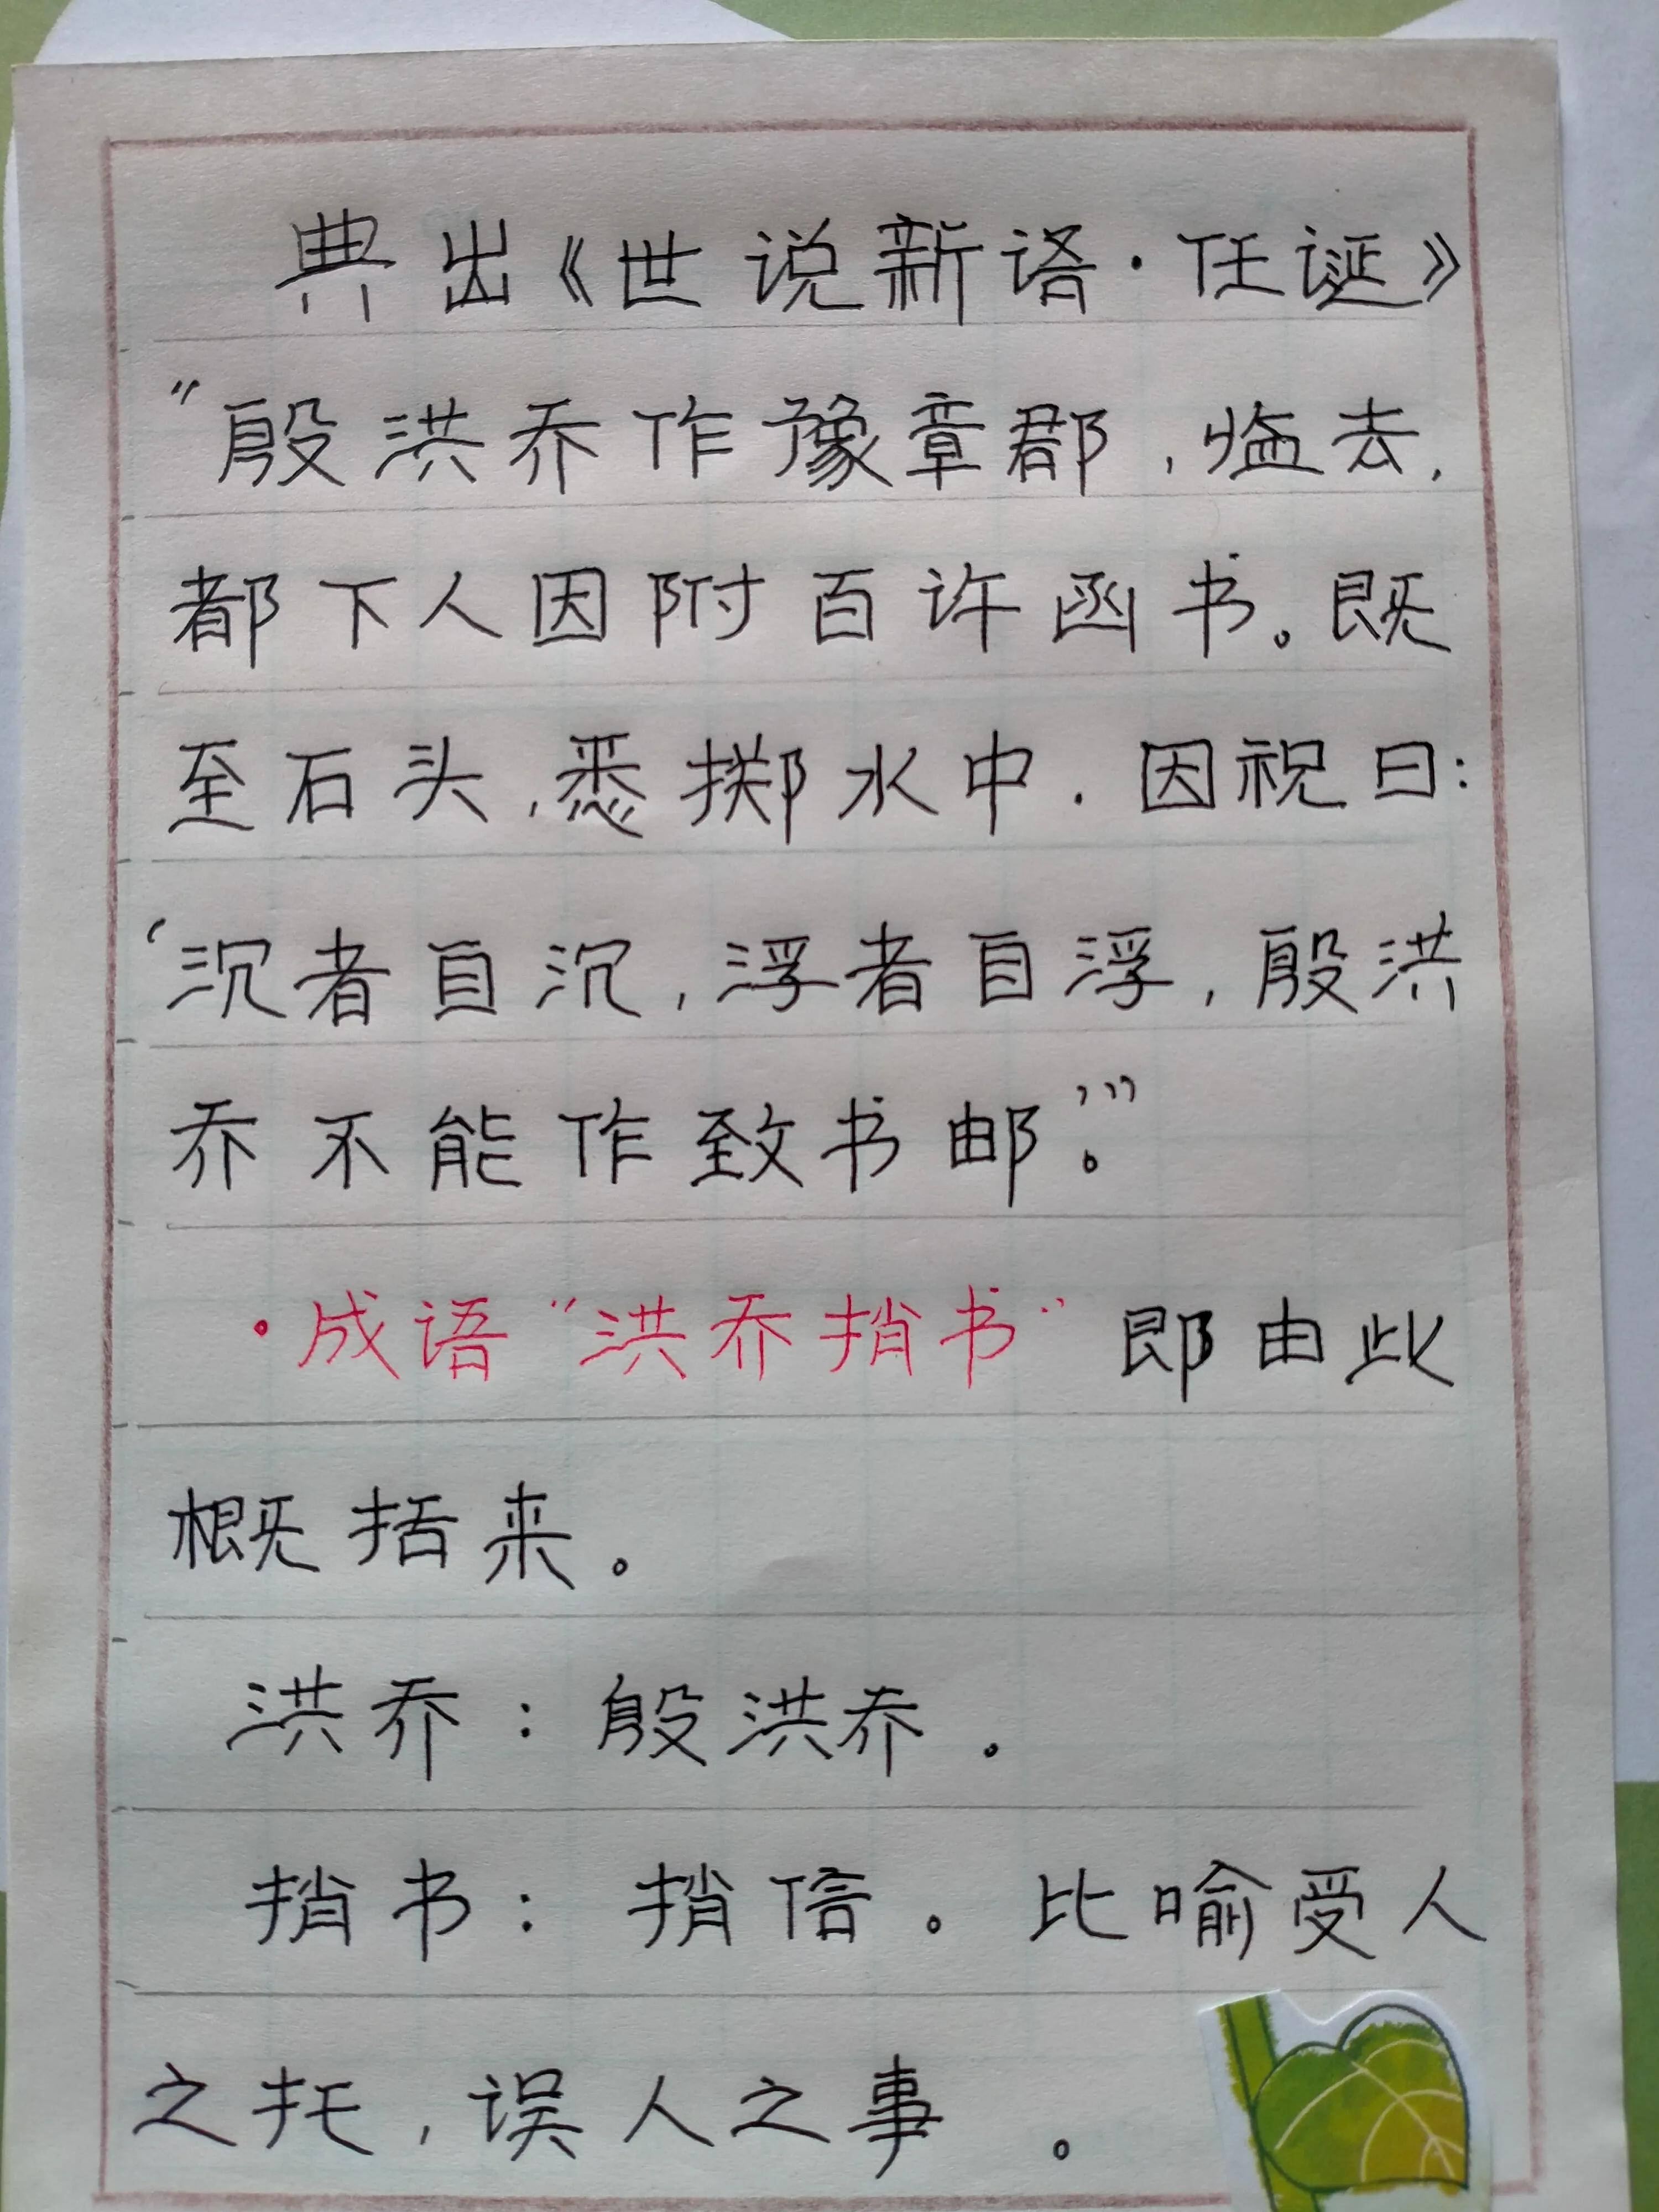 典出《世说新语·任诞》
“殷洪乔作豫章郡，临去，
都下人因附百许函书。既
至石头，悉掷水中．因祝曰：
‘沉者自沉，浮者自浮，殷洪
乔不能作致书邮。’”
·成语“洪乔捎书”即由此
概括来。
洪乔：殷洪乔．
捎书：捎信。比喻受人
之托，误人之事。